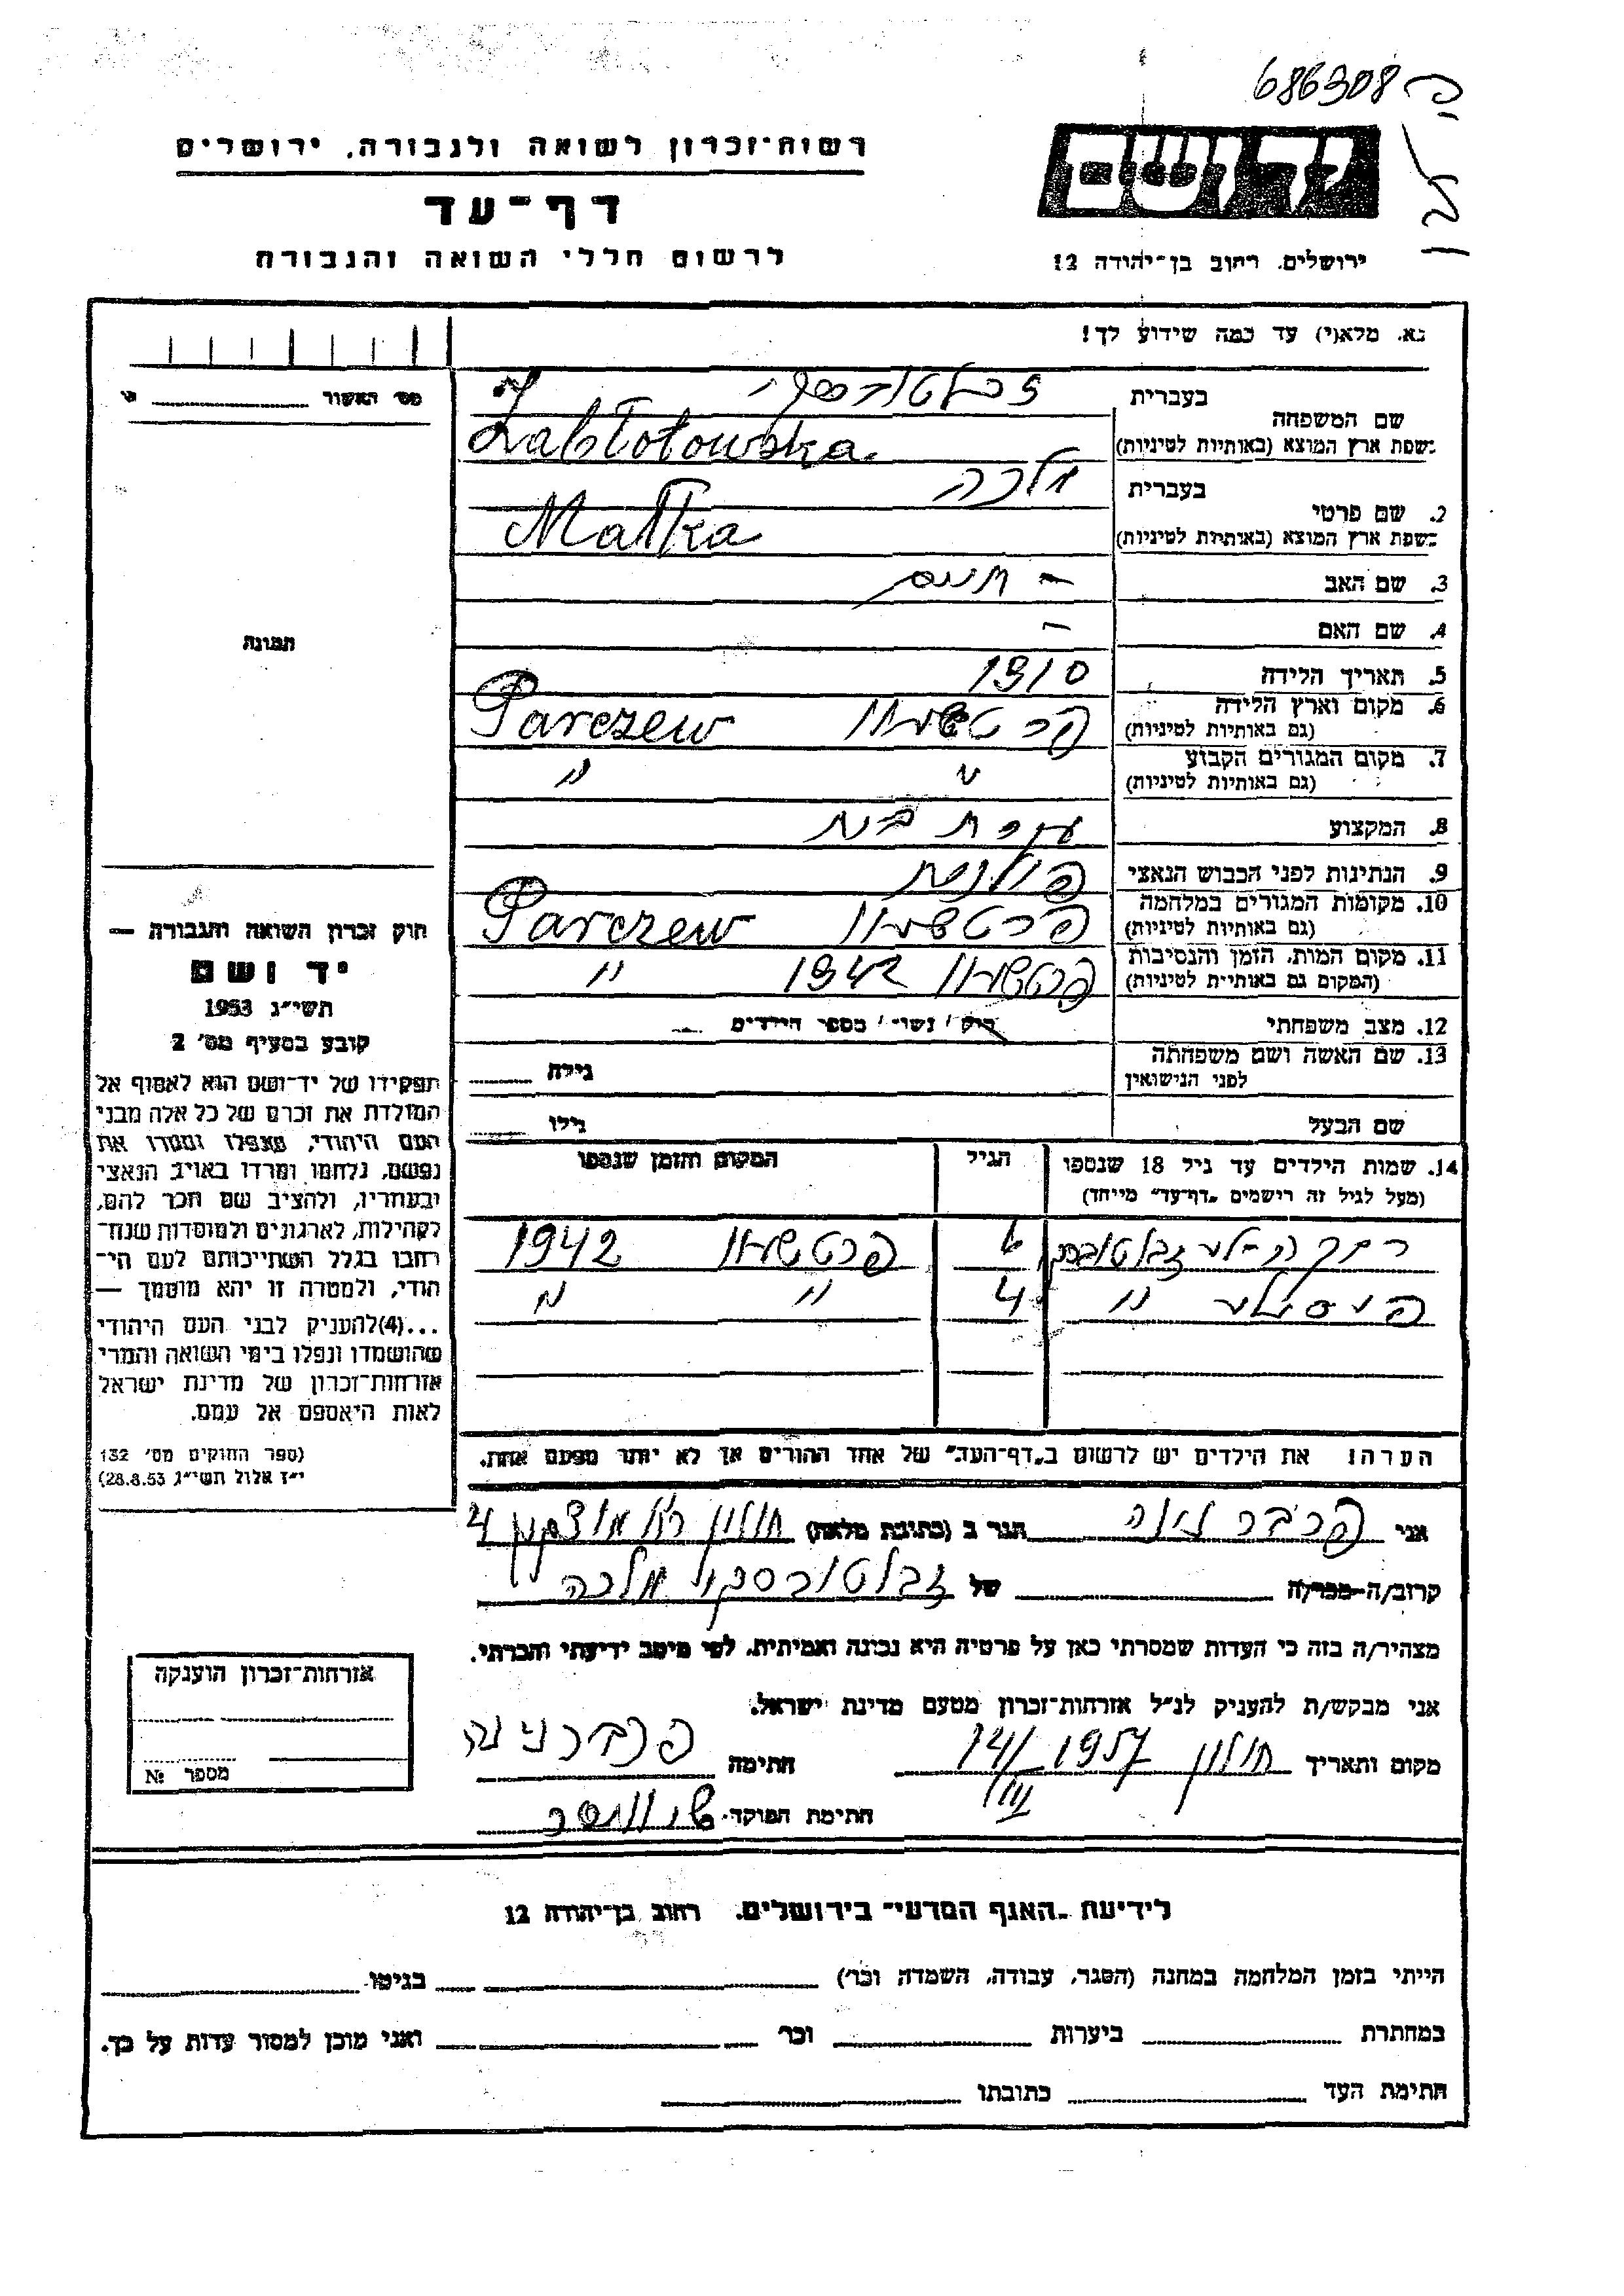 686308
רשות־זכרון לשואה ולגבורה, ירושלים
דף־עד
לרשום חללי השואה והגבורה
יד ושם
ירושלים, רחוב בן־יהודה 12
נא, מלא(י) עד כמה שידוע לך!
מס׳ האשור
שם המשפחה
בעברית
בשפת ארץ המוצא (באותיות לטיניות) Zabłotowska
2. שם פרטי
בעברית מלכה
בשפת ארץ המוצא (באותיות לטיניות) Małka
3. שם האב – חיים
4. שם האם –
תמונה
5. תאריך הלידה 1910
6. מקום וארץ הלידה (גם באותיות לטיניות) פרטשוו Parczew
7. מקום המגורים הקבוע (גם באותיות לטיניות) " "
8. המקצוע עקרת בית
9. הנתינות לפני הכבוש הנאצי פולנית
10. מקומות המגורים במלחמה (גם באותיות לטיניות) Parczew
11. מקום המות, הזמן והנסיבות (המקום גם באותיות לטיניות) פרטשוו 1942 "
12. מצב משפחתי רוק / נשוי / מספר הילדים
13. שם האשה ושם משפחתה לפני הנישואין גילה
שם הבעל גילו
14. שמות הילדים עד גיל 18 שנספו (מעל לגיל זה רישמים „דף־עד" מייחד)
הגיל
המקום והזמן שנספו
6 פרטשוו 1942
" 4 " "
הערה: את הילדים יש לרשום ב„דף־העד" של אחד ההורים אך לא יותר מפעם אחת.
חוק זכרון השואה והגבורה —
יד ושם
תשי״ג 1953
קובע בסעיף מס׳ 2
תפקידו של יד־ושם הוא לאסוף אל
המולדת את זכרם של כל אלה מבני
העם היהודי, שנפלו ומסרו את
נפשם, נלחמו ומרדו באויב הנאצי
ובעוזריו, ולהציב שם וזכר להם,
לקהילות, לארגונים ולמוסדות שנח־
רבו בגלל השתייכותם לעם הי־
הודי, ולמטרה זו יהא מוסמך —
...(4)להעניק לבני העם היהודי
שהושמדו ונפלו בימי השואה והמרי
אזרחות־זכרון של מדינת ישראל
לאות היאספם אל עמם.
(ספר החוקים מס׳ 132
י״ז אלול תשי״ג 28.8.53)
אני פרבר הגר ב (כתובת מלאה) חולון 4
קרוב/ה־מכר/ה של מלכה
מצהיר/ה בזה כי העדות שמסרתי כאן על פרטיה היא נכונה ואמיתית, לפי מיטב ידיעתי והכרתי.
אני מבקש/ת להעניק לנ״ל אזרחות־זכרון מטעם מדינת ישראל.
מקום ותאריך חולון 14/III 1957 חתימה
חתימת הפוקד
אזרחות־זכרון הוענקה
מספר №
לידיעת „האגף המדעי" בירושלים. רחוב בן־יהודה 12
הייתי בזמן המלחמה במחנה (הסגר, עבודה, השמדה וכר׳) בגיטו
במחתרת ביערות וכר׳ ואני מוכן למסור עדות על כך.
חתימת העד כתובתו